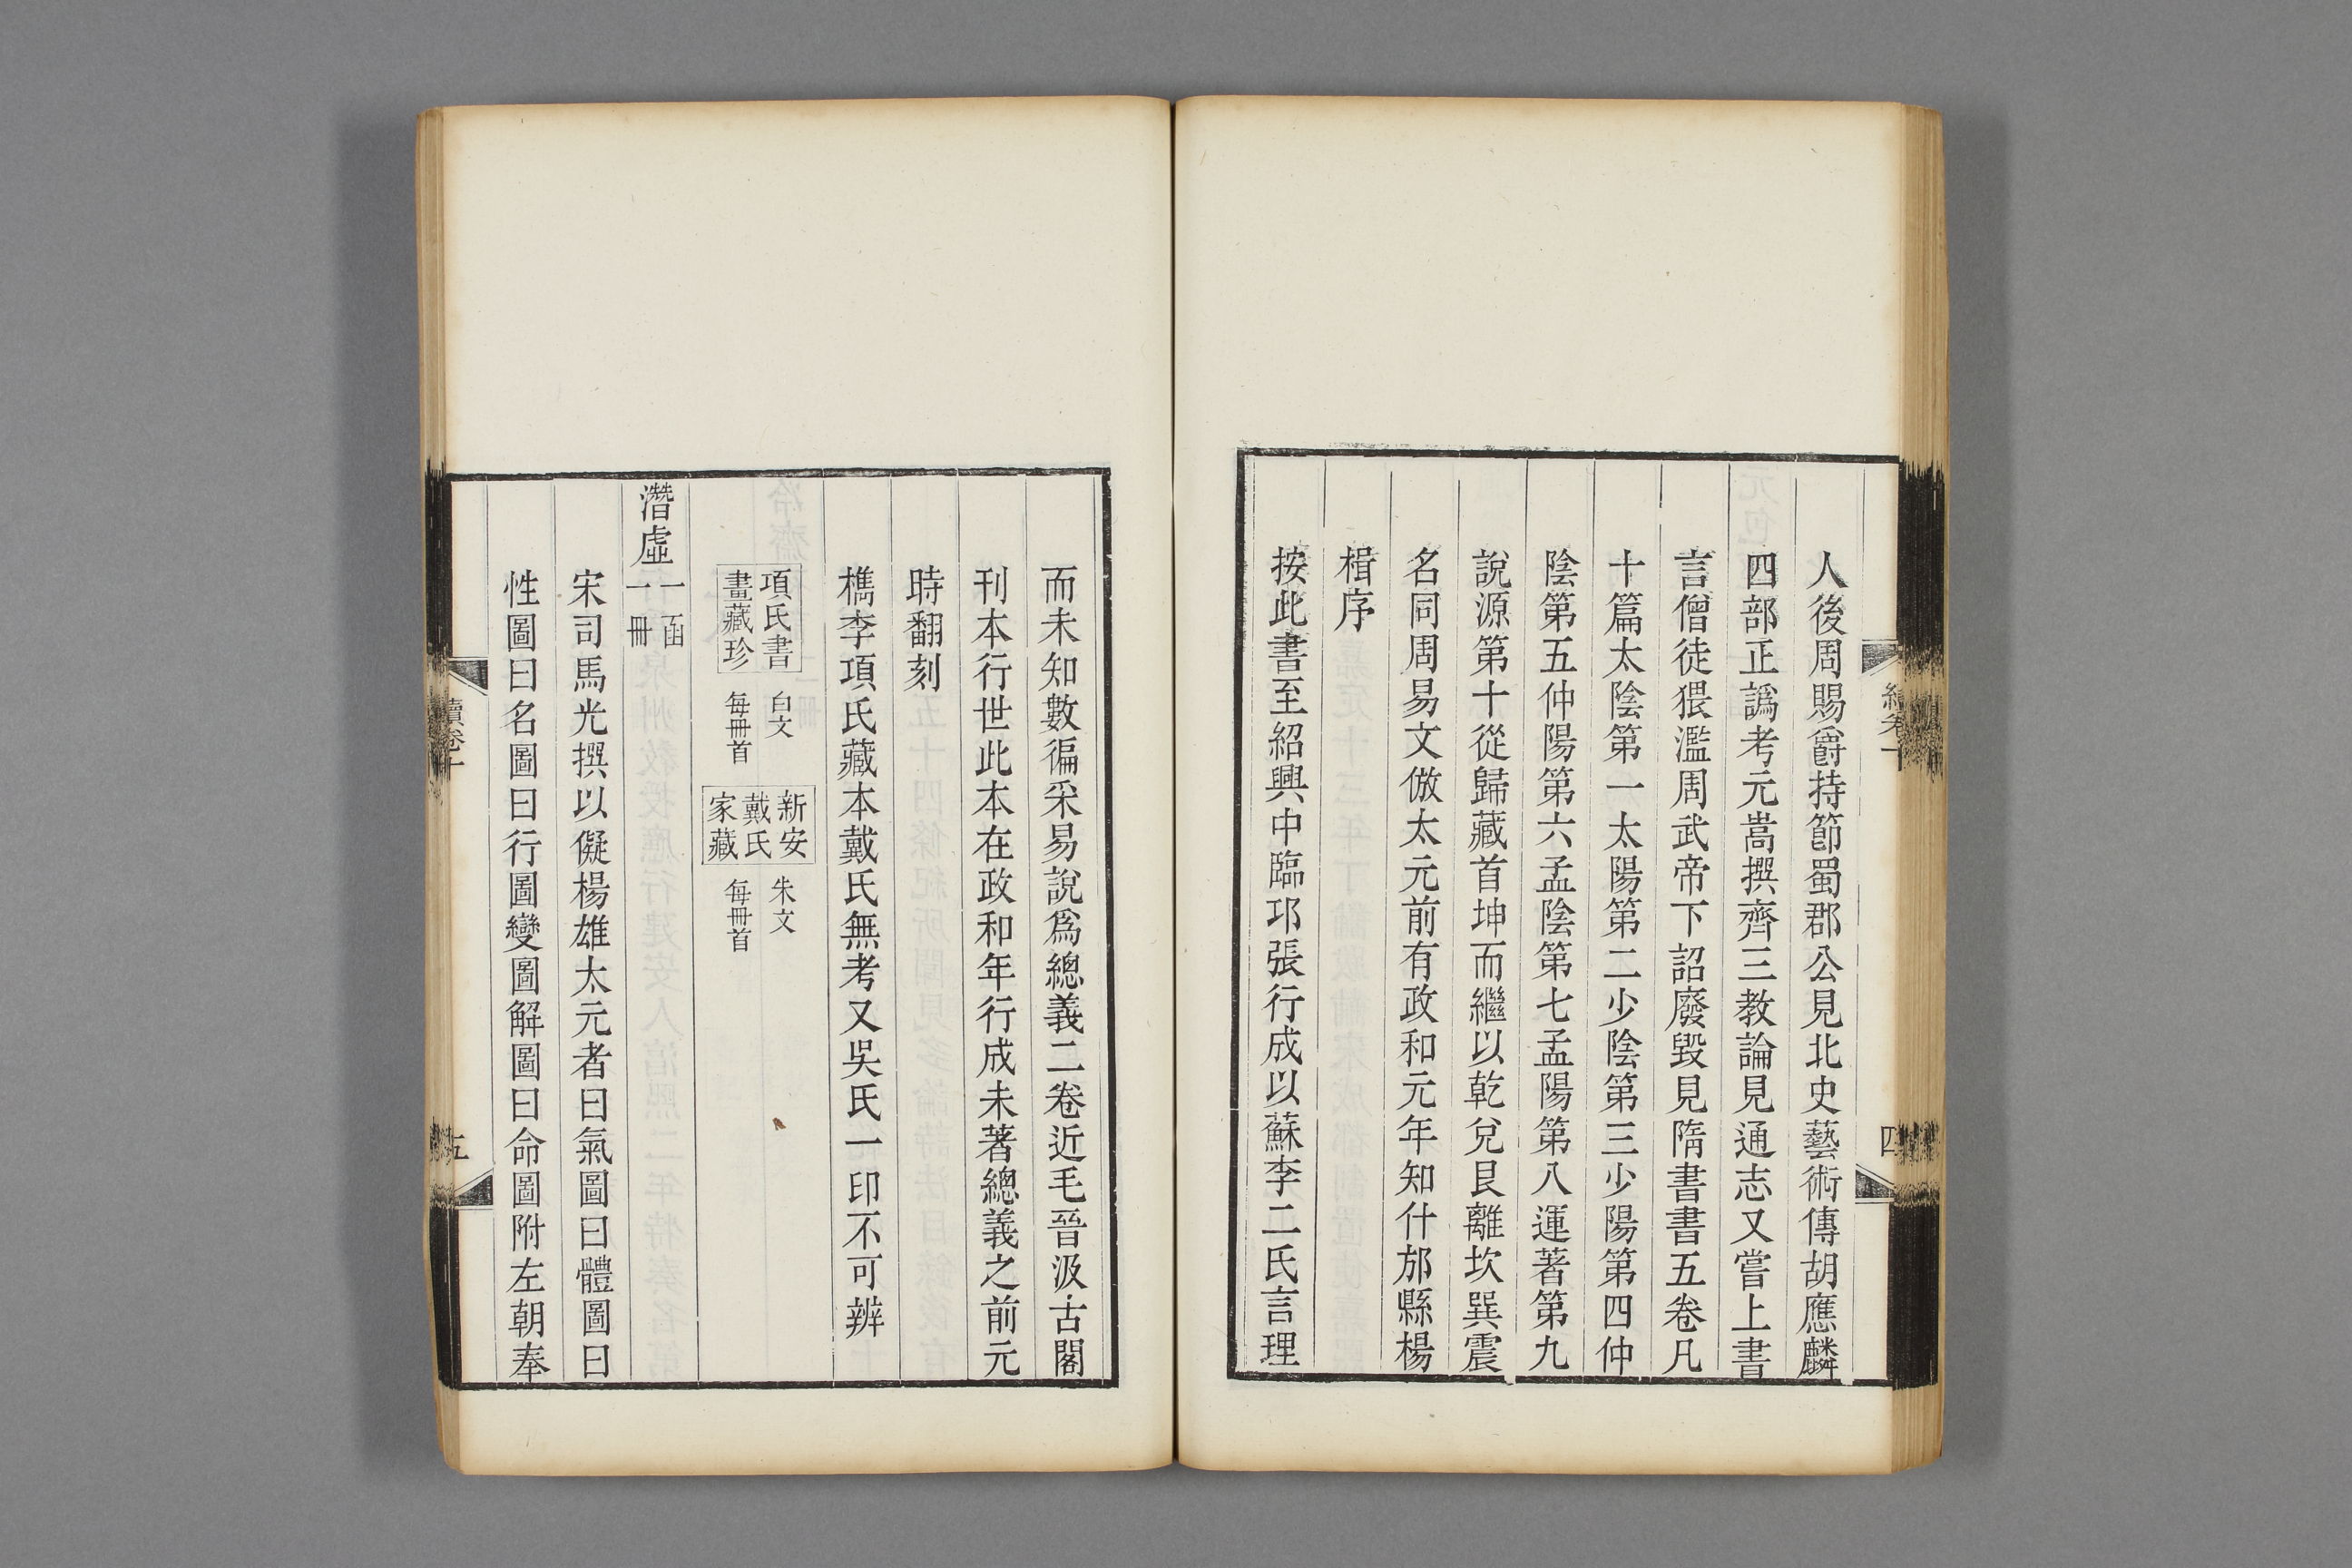 人後周賜爵持節蜀郡公見北史藝術傳胡應麟
四部正譌考元嵩撰齊三教論見通志又嘗上書
言僧徒猥濫周武帝下詔廢毀見隋書書五卷凡
十篇太陰第一太陽第二少陰第三少陽第四仲
陰第五仲陽第六孟陰第七孟陽第八運著第九
說源第十從歸藏首坤而繼以乾兌艮離坎巽震
名同周易文倣太元前有政和元年知什邡縣楊
楫序
按此書至紹興中臨邛張行成以蘇李二氏言理
四
而未知數徧采易說爲總義二卷近毛晉汲古閣
刊本行世此本在政和年行成未著總義之前元
時翻刻
檇李項氏藏本戴氏無考又吳氏一印不可辨
項氏書
畫藏珍
白文
每冊首
新安
戴氏
家藏
朱文
每冊首
潛虛
一函
一冊
宋司馬光撰以儗楊雄太元者曰氣圖曰體圖曰
性圖曰名圖曰行圖變圖解圖曰命圖附左朝奉
續卷十
五